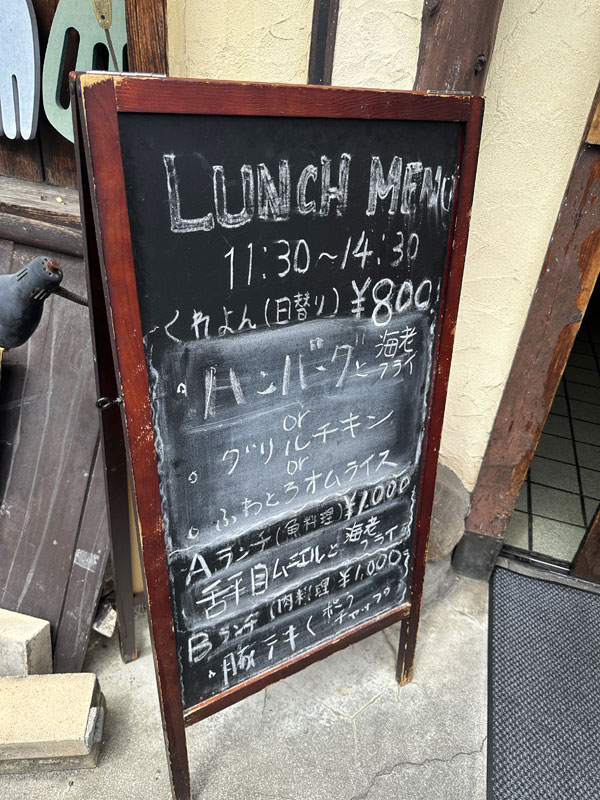 LUNCH MENU
11:30~14:30
くれよん(日替り) ¥800
。ハンバーグと海老フライ
or
。グリルチキン
or
。ふわとろオムライス
Aランチ(魚料理) ¥1.000
舌平目ムニエルと海老フライ
Bランチ(肉料理 ¥1,000
。豚テキ(ポークチャップ